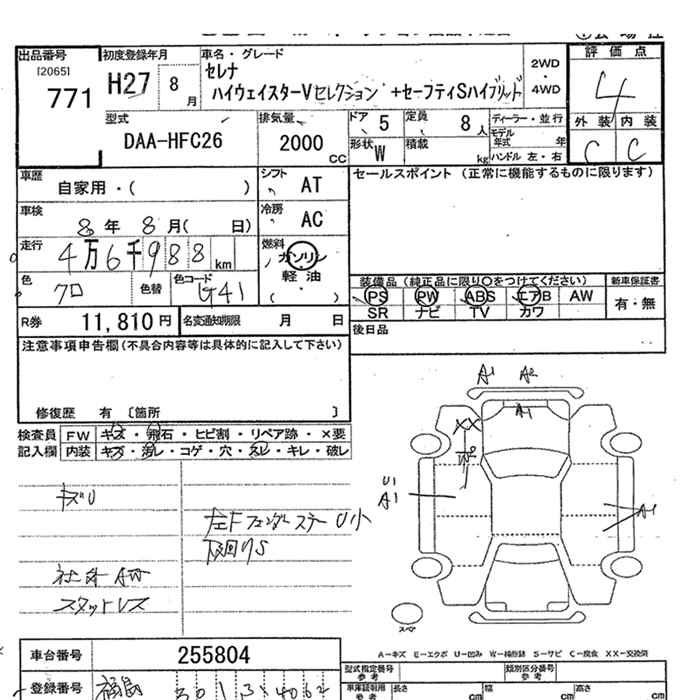 出品番号
[2065]
771
初度登録年月
H27 8月
車名・グレード
セレナ
ハイウェイスターVセレクション +セーフティSハイブリッド
2WD
・
4WD
評価点
4
外装 内装
C C
型式
DAA-HFC26
排気量
2000 CC
ドア 5
定員 8人
形状 W
積載 kg
ディーラー・並行
モデル年式 年
ハンドル 左・右
車歴
自家用・( )
シフト AT
車検
8年 8月( 日)
冷房 AC
走行
4万6千988km
燃料
ガソリン
軽・油
( )
色
クロ
色替
色コード
G41
セールスポイント (正常に機能するものに限ります)
装備品 (純正品に限り○をつけてください)
新車保証書
PS PW ABS エアB AW
SR ナビ TV カワ
有・無
R券 11,810円
名変通知期限 月 日
後日品
注意事項申告欄(不具合内容等は具体的に記入して下さい)
修復歴 有 〔箇所 〕
検査員
記入欄
FW キズ・飛石・ヒビ割・リペア跡・×要
内装 キズ・汚レ・コゲ・穴・スレ・キレ・破レ
キズU
左Fフェンダーステー U小
下回りS
社外AW
スタットレス
A1 A2
A1
XX
W2
U1
A1
A1
スペア
A-キズ E-エクボ U-凹み W-補修跡 S-サビ C-腐食 XX-交換済
車台番号
255804
登録番号
福島
型式指定番号
参考
類別区分番号
参考
車庫証明用
参考
長さ cm
幅 cm
高さ cm